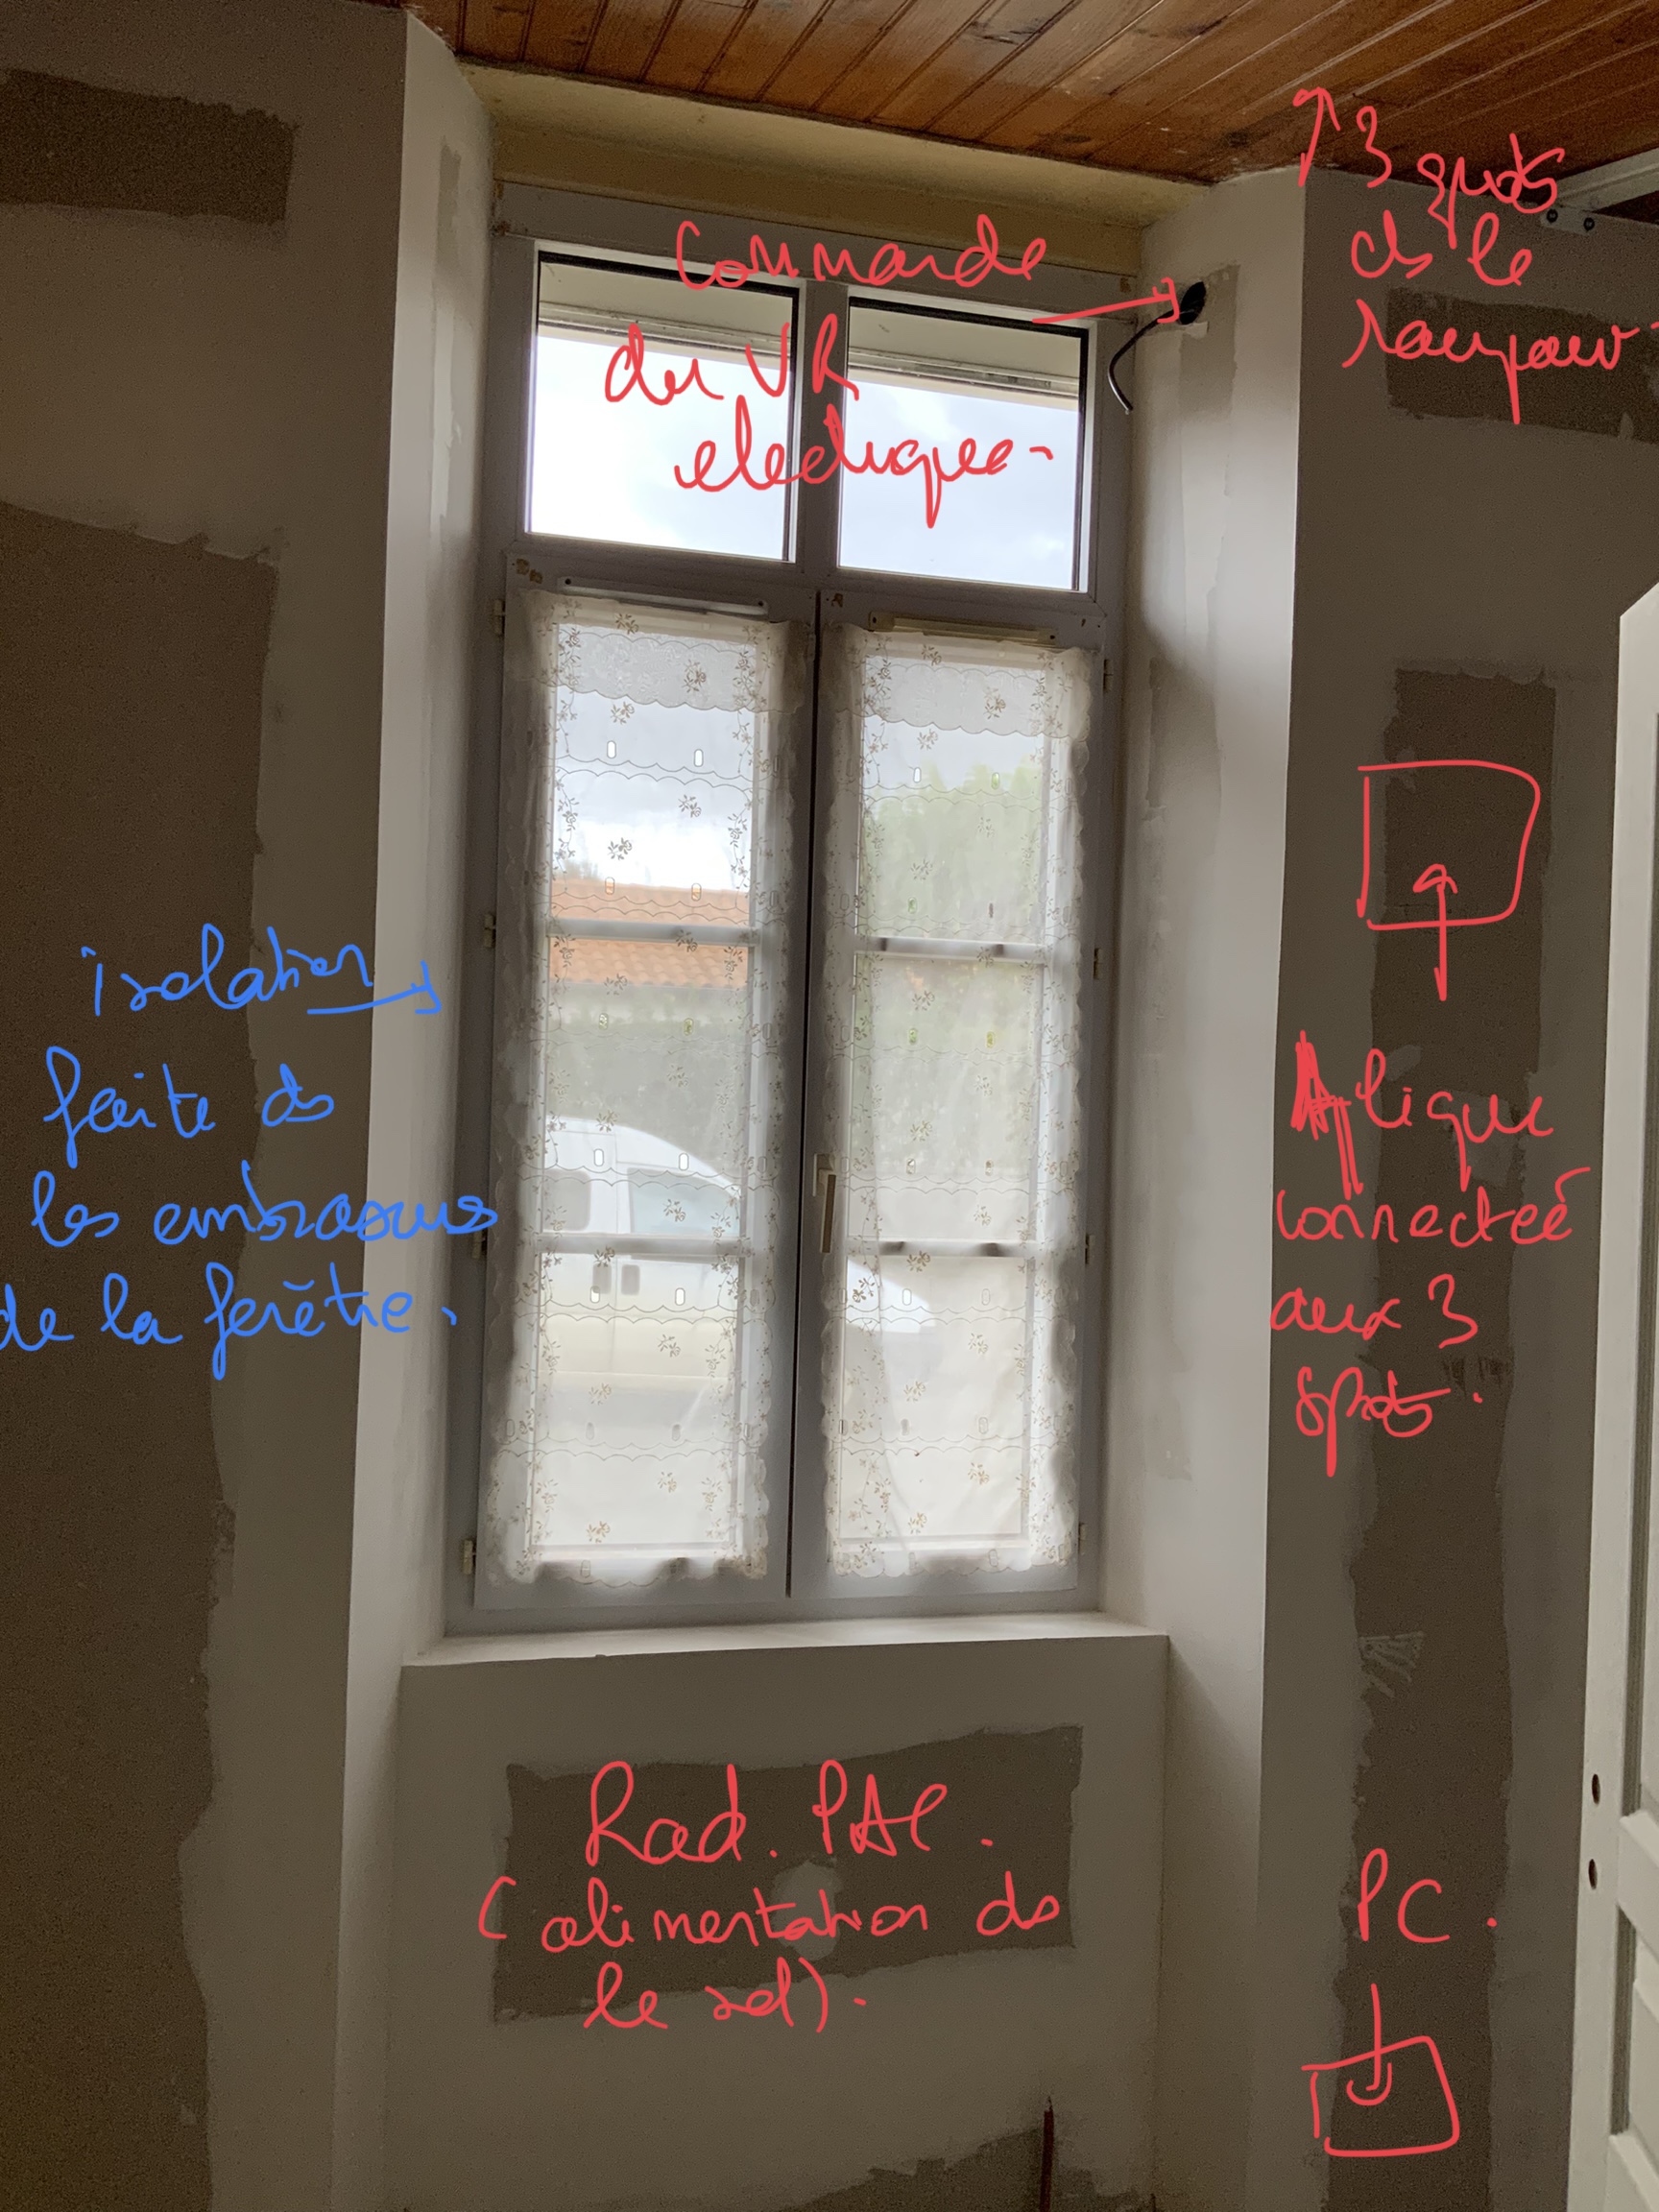 Commande
du VR
electrique.
3 spots
ds le
rampant.
isolation
faite ds
les embrasures
de la fenêtre.
Applique
connecteé
aux 3
spots.
Rad. PAC.
(alimentation ds
le sol).
PC.